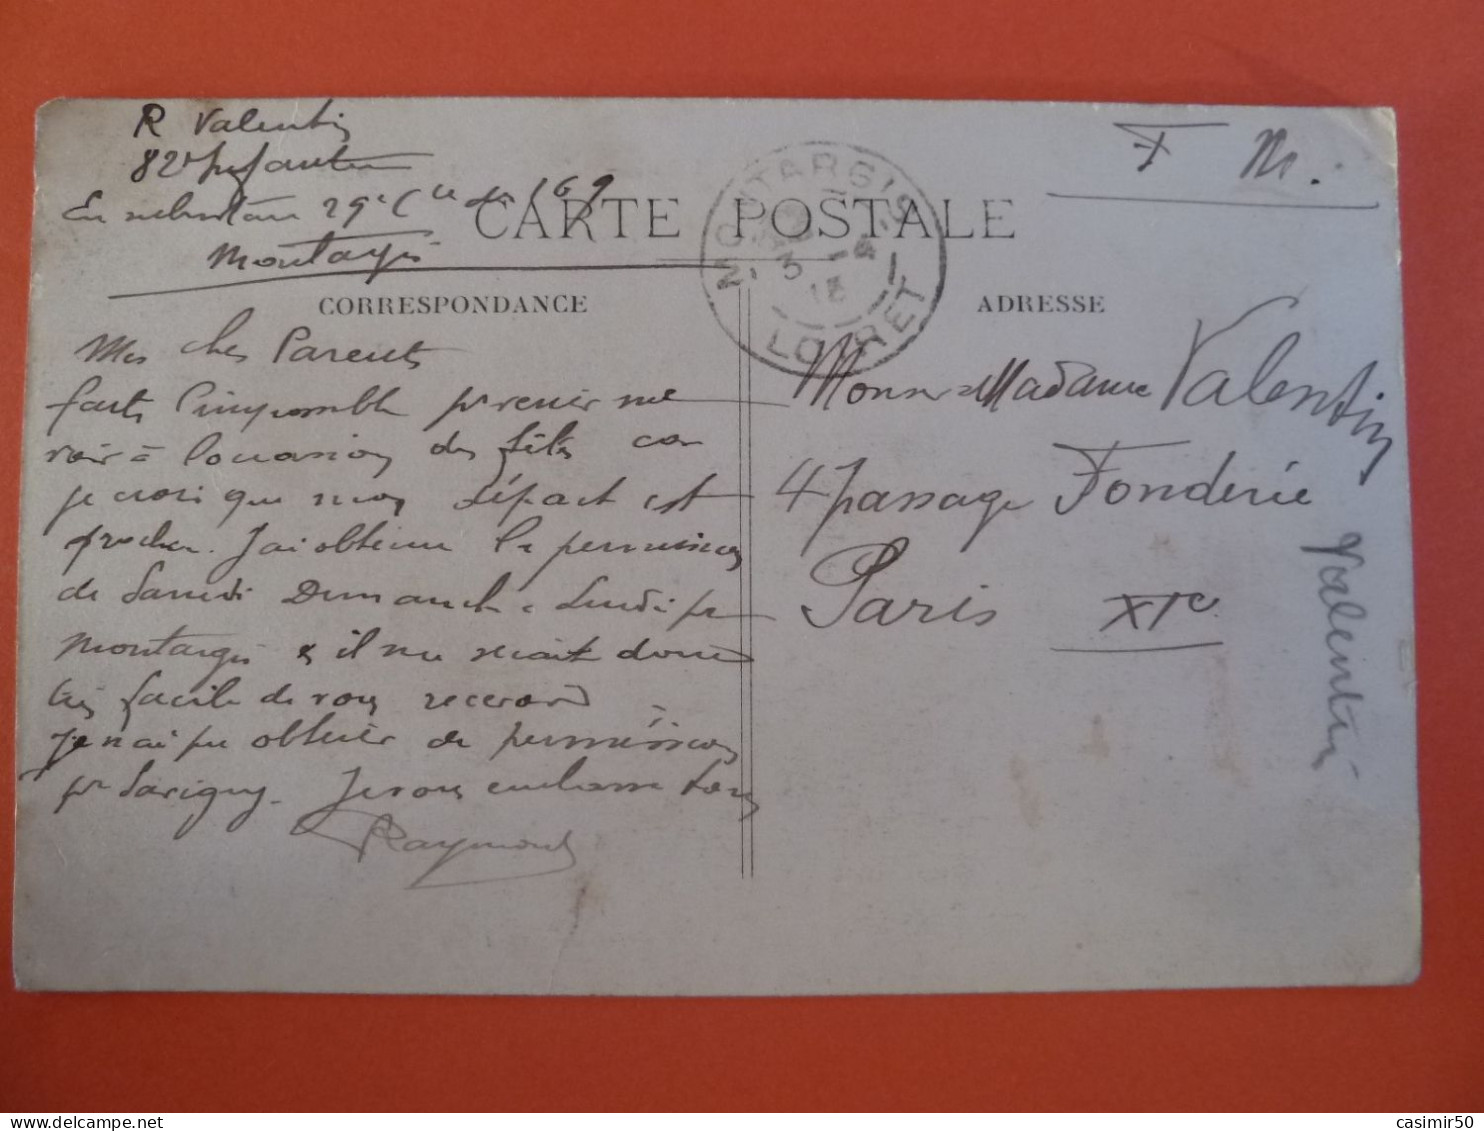 R Valentin
82e Infanterie
En subsistance 29e Cie du 169
Montargis
F M.
CARTE POSTALE
MONTARGIS
3 - 4
15
LOIRET
CORRESPONDANCE
ADRESSE
Mes chers Parents
faites l'impossible pr venir me
voir à l'occasion des fêtes car
je crois que mon départ est
prochain. J'ai obtenu la permission
de Samedi Dimanche & Lundi pr
Montargis & il me serait donc
très facile de vous recevoir
Je n'ai pu obtenir de permission
pr Savigny. Je vous embrasse tous
Raymond
Monsr & Madame Valentin
4 passage Fonderie
Paris XIe
Valentin
casimir50